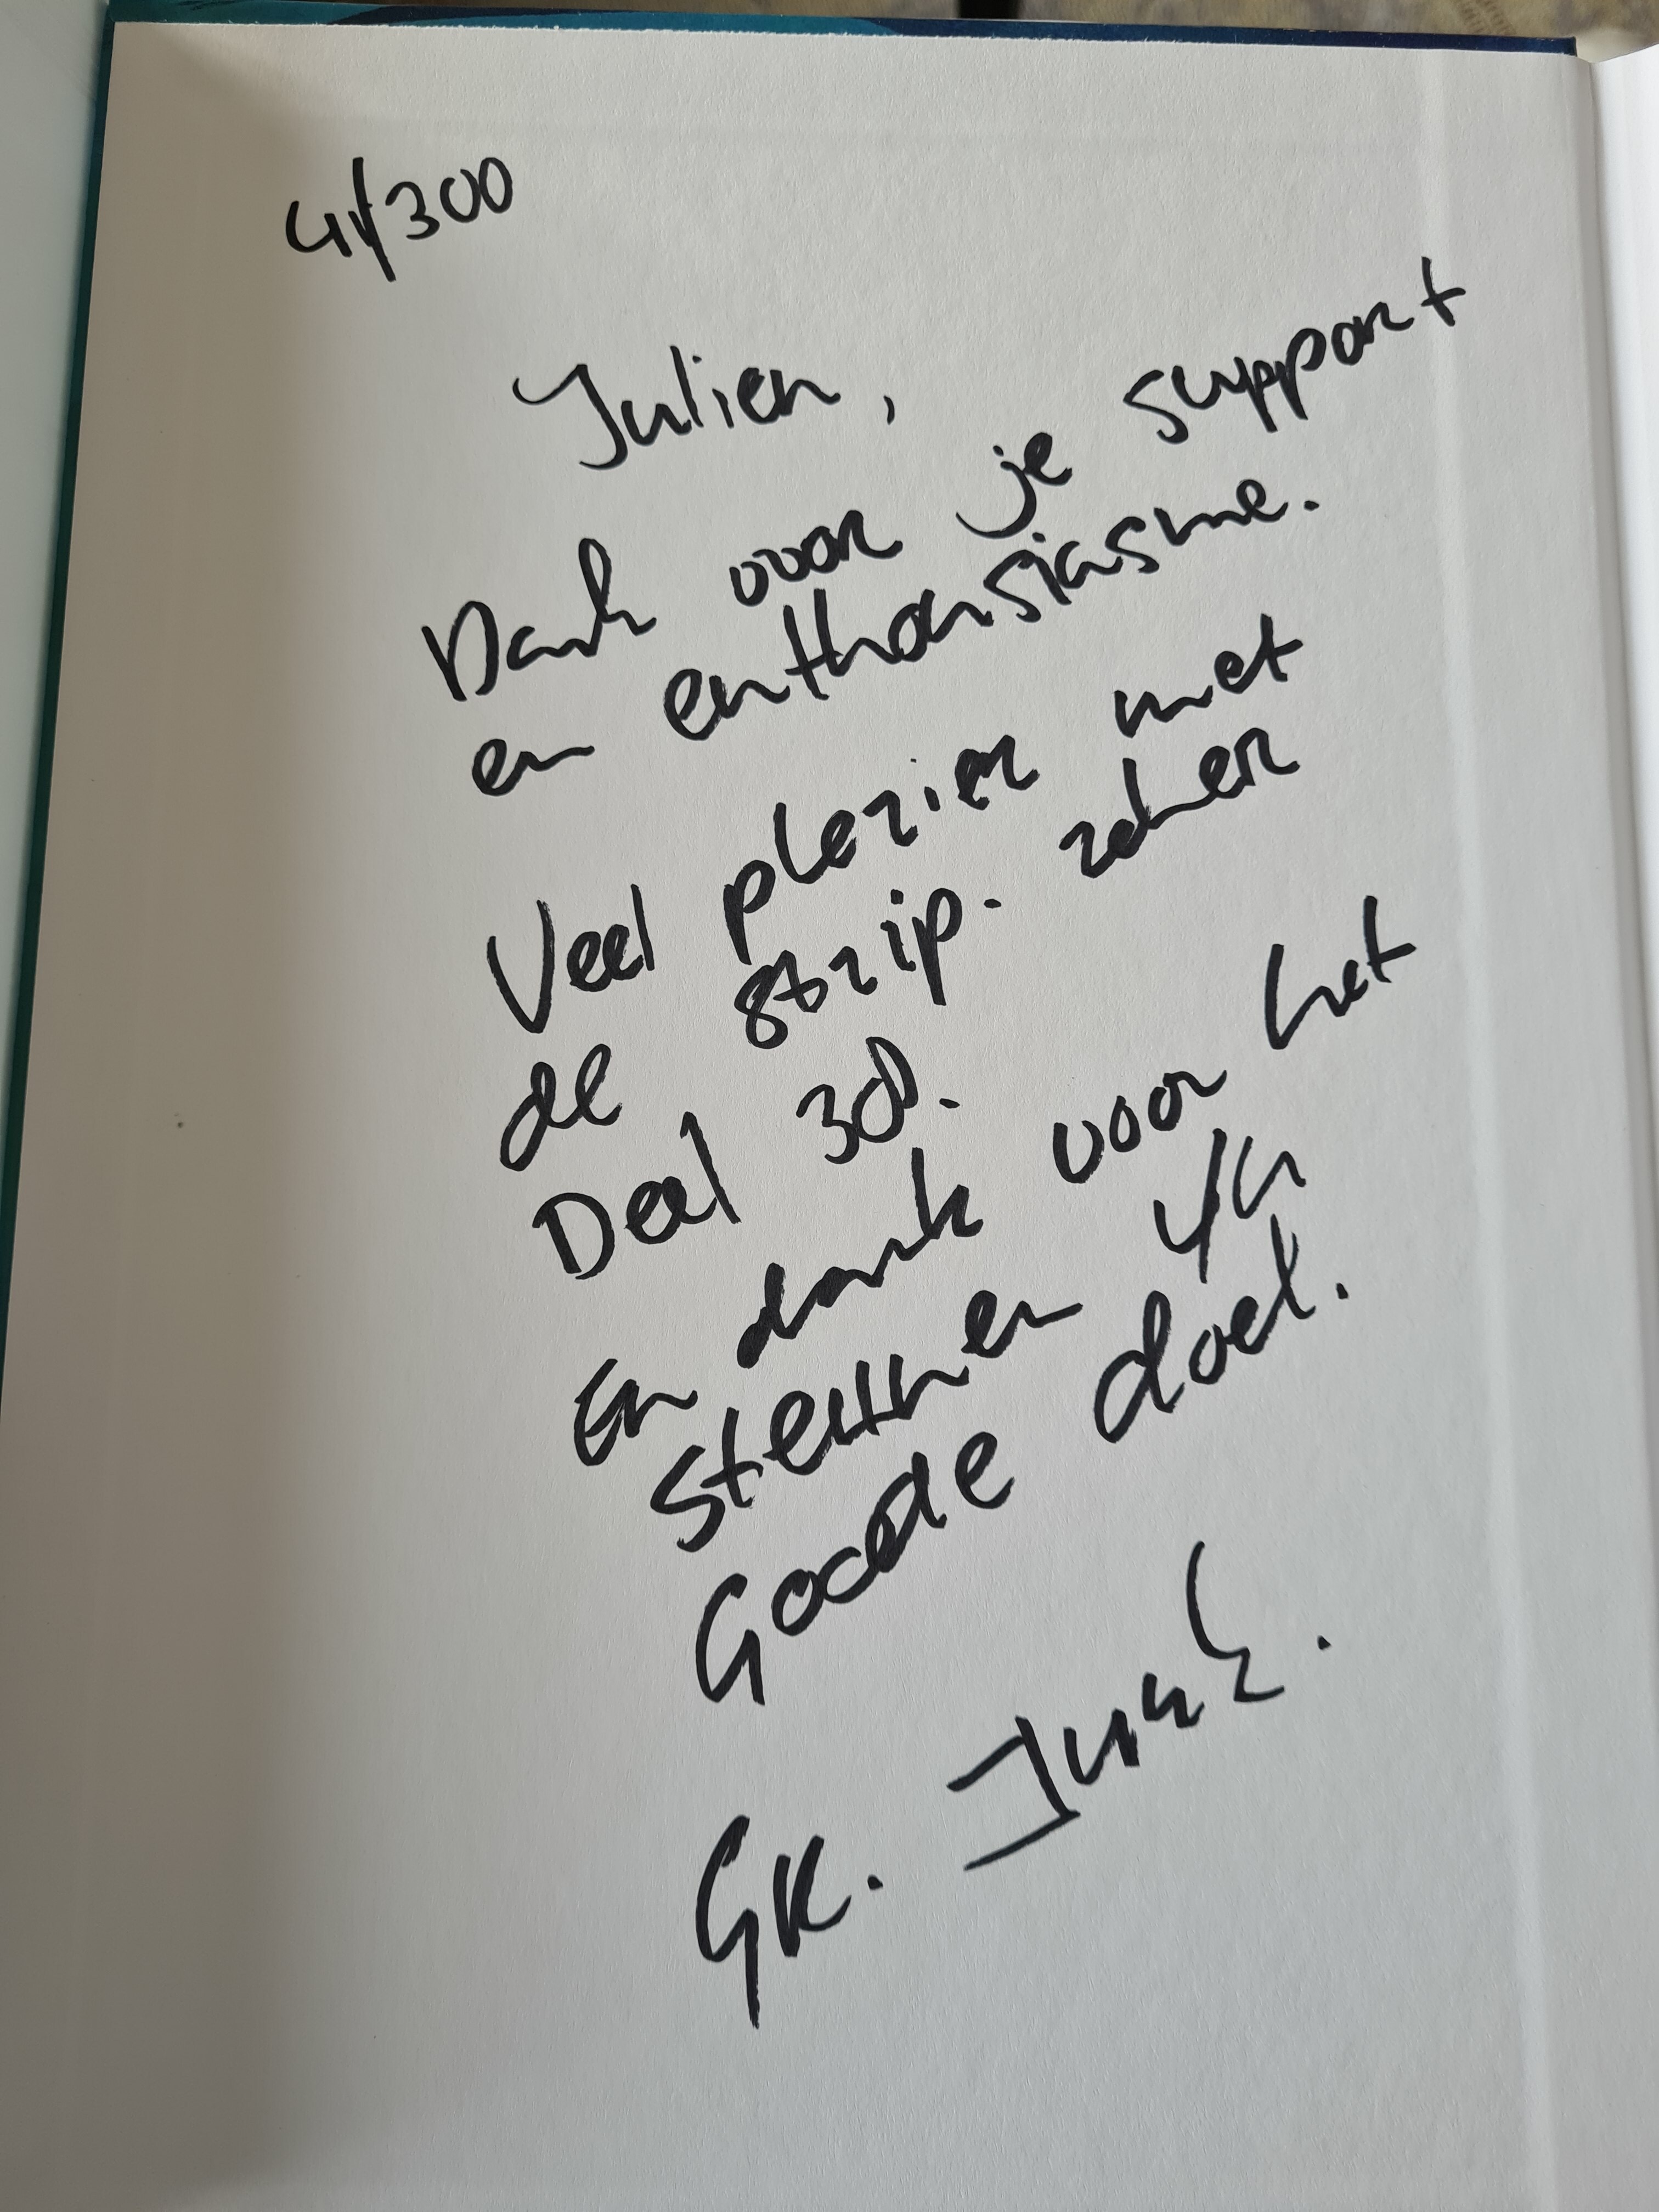 4/300
Julien,
Dank voor je support
en enthousiasme.
Veel plezier met
de strip. zeker
Deel 30.
En dank voor het
steunen v/h
Goede doel.
GR.